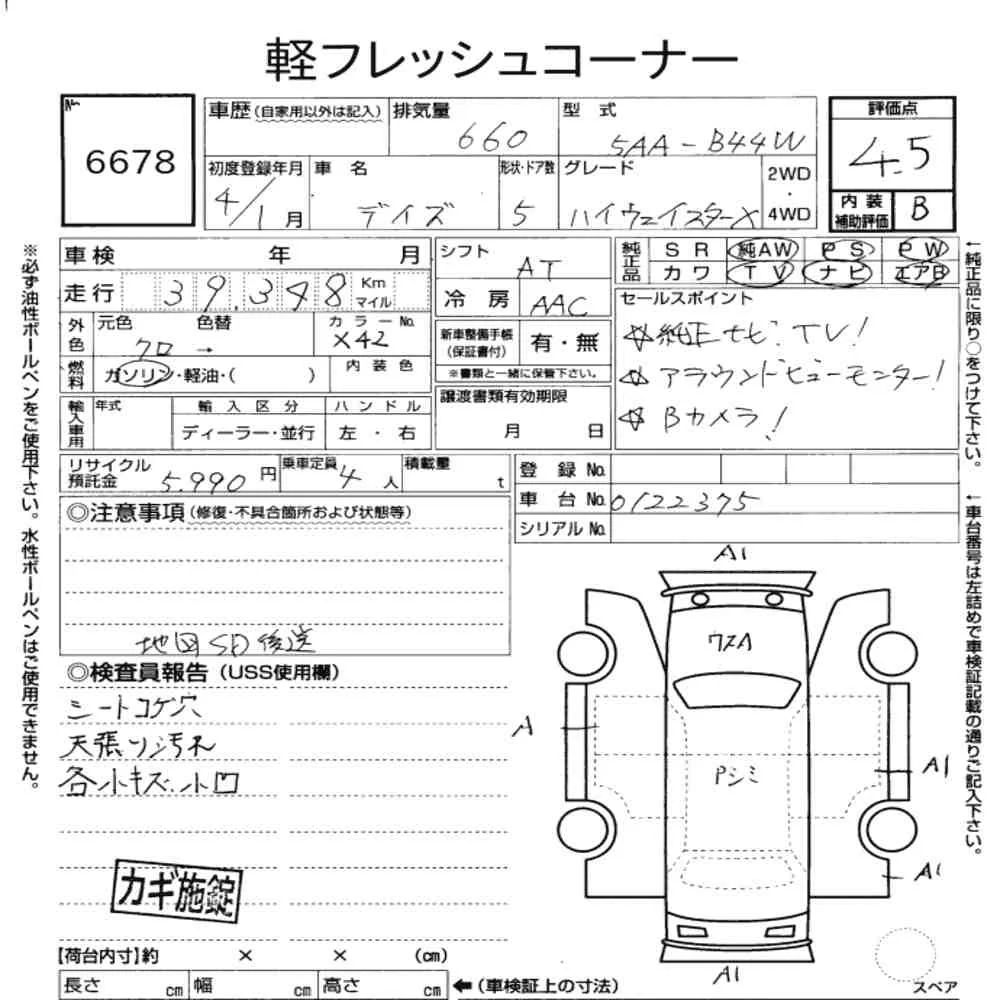 軽フレッシュコーナー
№
6678
車歴(自家用以外は記入)
排気量
660
型 式
5AA-B44W
評価点
4.5
初度登録年月
4/1月
車 名
デイズ
形状・ドア数
5
グレード
ハイウェイスターX
2WD
・
4WD
内 装
補助評価
B
車検 年 月
シフト
AT
純正品
SR 純AW PS PW
カワ TV ナビ エアB
走行 39.348 Km
マイル
冷 房
AAC
セールスポイント
☆純正ナビ・TV!
☆アラウンドビューモニター!
☆Bカメラ!
外色
元色 色替
クロ →
カラーNo.
X42
新車整備手帳
(保証書付)
有・無
※書類と一緒に保管下さい。
燃料
ガソリン・軽油・( )
内装色
輸入車用
年式
輸入区分
ディーラー・並行
ハンドル
左・右
譲渡書類有効期限
月 日
リサイクル
預託金
5.990 円
乗車定員
4 人
積載量
t
登 録 No.
車 台 No. 0122375
シリアル No.
◎注意事項(修復・不具合箇所および状態等)
地図SD後送
◎検査員報告(USS使用欄)
シートコゲ穴
天張り汚れ
各小キズ.小凹
カギ施錠
A1
ワメA
A
Pシミ
A1
A1
A1
スペア
【荷台内寸】約 × × (cm)
長さ cm 幅 cm 高さ cm ←(車検証上の寸法)
※必ず油性ボールペンをご使用下さい。水性ボールペンはご使用できません。
←純正品に限り○をつけて下さい。
←車台番号は左詰めで車検証記載の通りご記入下さい。